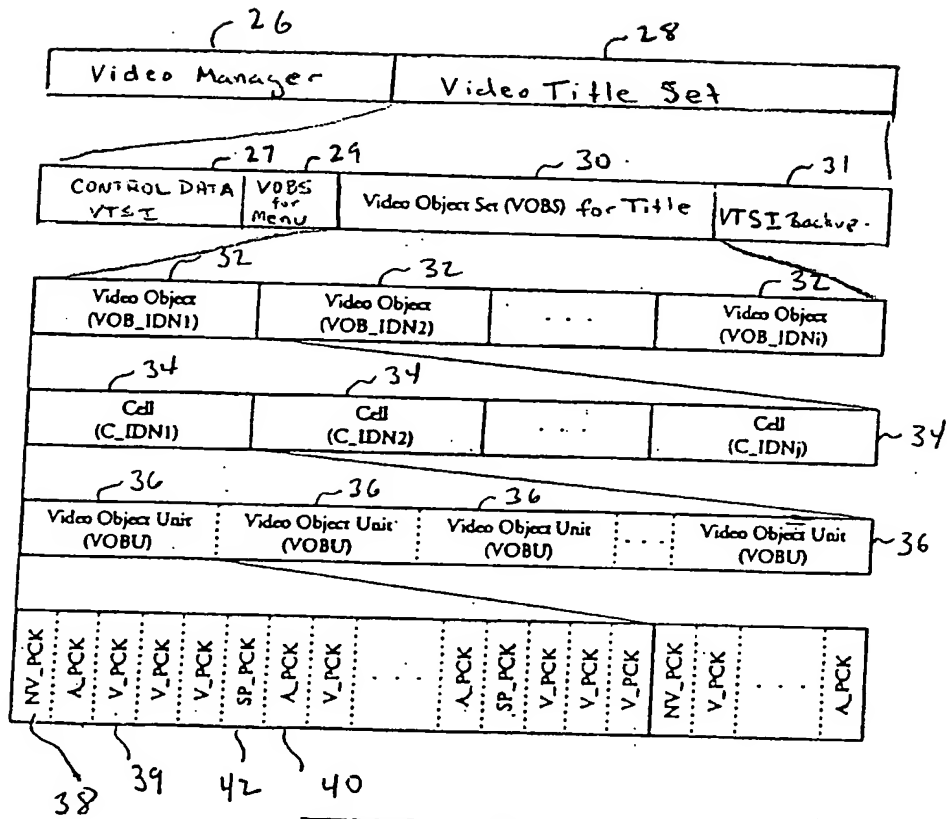 26 28
Video Manager Video Title Set
27 29 30 31
CONTROL DATA VTSI VOBS for Menu Video Object Set (VOBS) for Title VTSI Backup.
32 32 32
Video Object Video Object Video Object
(VOB_IDN1) (VOB_IDN2) . . . (VOB_IDNi)
34 34
Cell Cell Cell
(C_IDN1) (C_IDN2) . . . (C_IDNj) 34
36 36 36
Video Object Unit Video Object Unit Video Object Unit Video Object Unit
(VOBU) (VOBU) (VOBU) . . . (VOBU) 36
NV_PCK A_PCK V_PCK V_PCK V_PCK SP_PCK A_PCK V_PCK . . . . A_PCK SP_PCK V_PCK V_PCK V_PCK NV_PCK V_PCK . . . . A_PCK
38 39 42 40